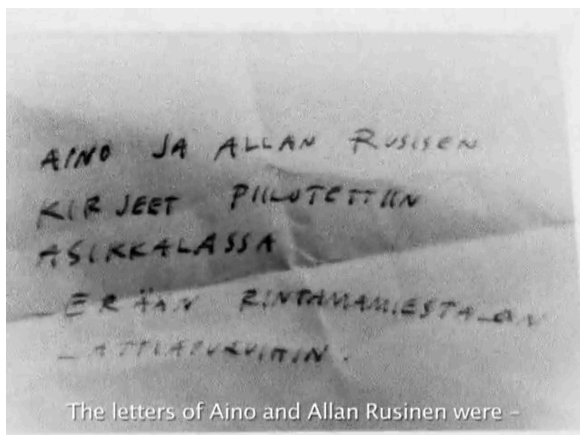 AINO JA ALLAN RUSISEN
KIRJEET PIILOTETTIIN
ASIKKALASSA
ERÄÄN RINTAMAMIESTALON
LATTIAPURUIHIN.
The letters of Aino and Allan Rusinen were –